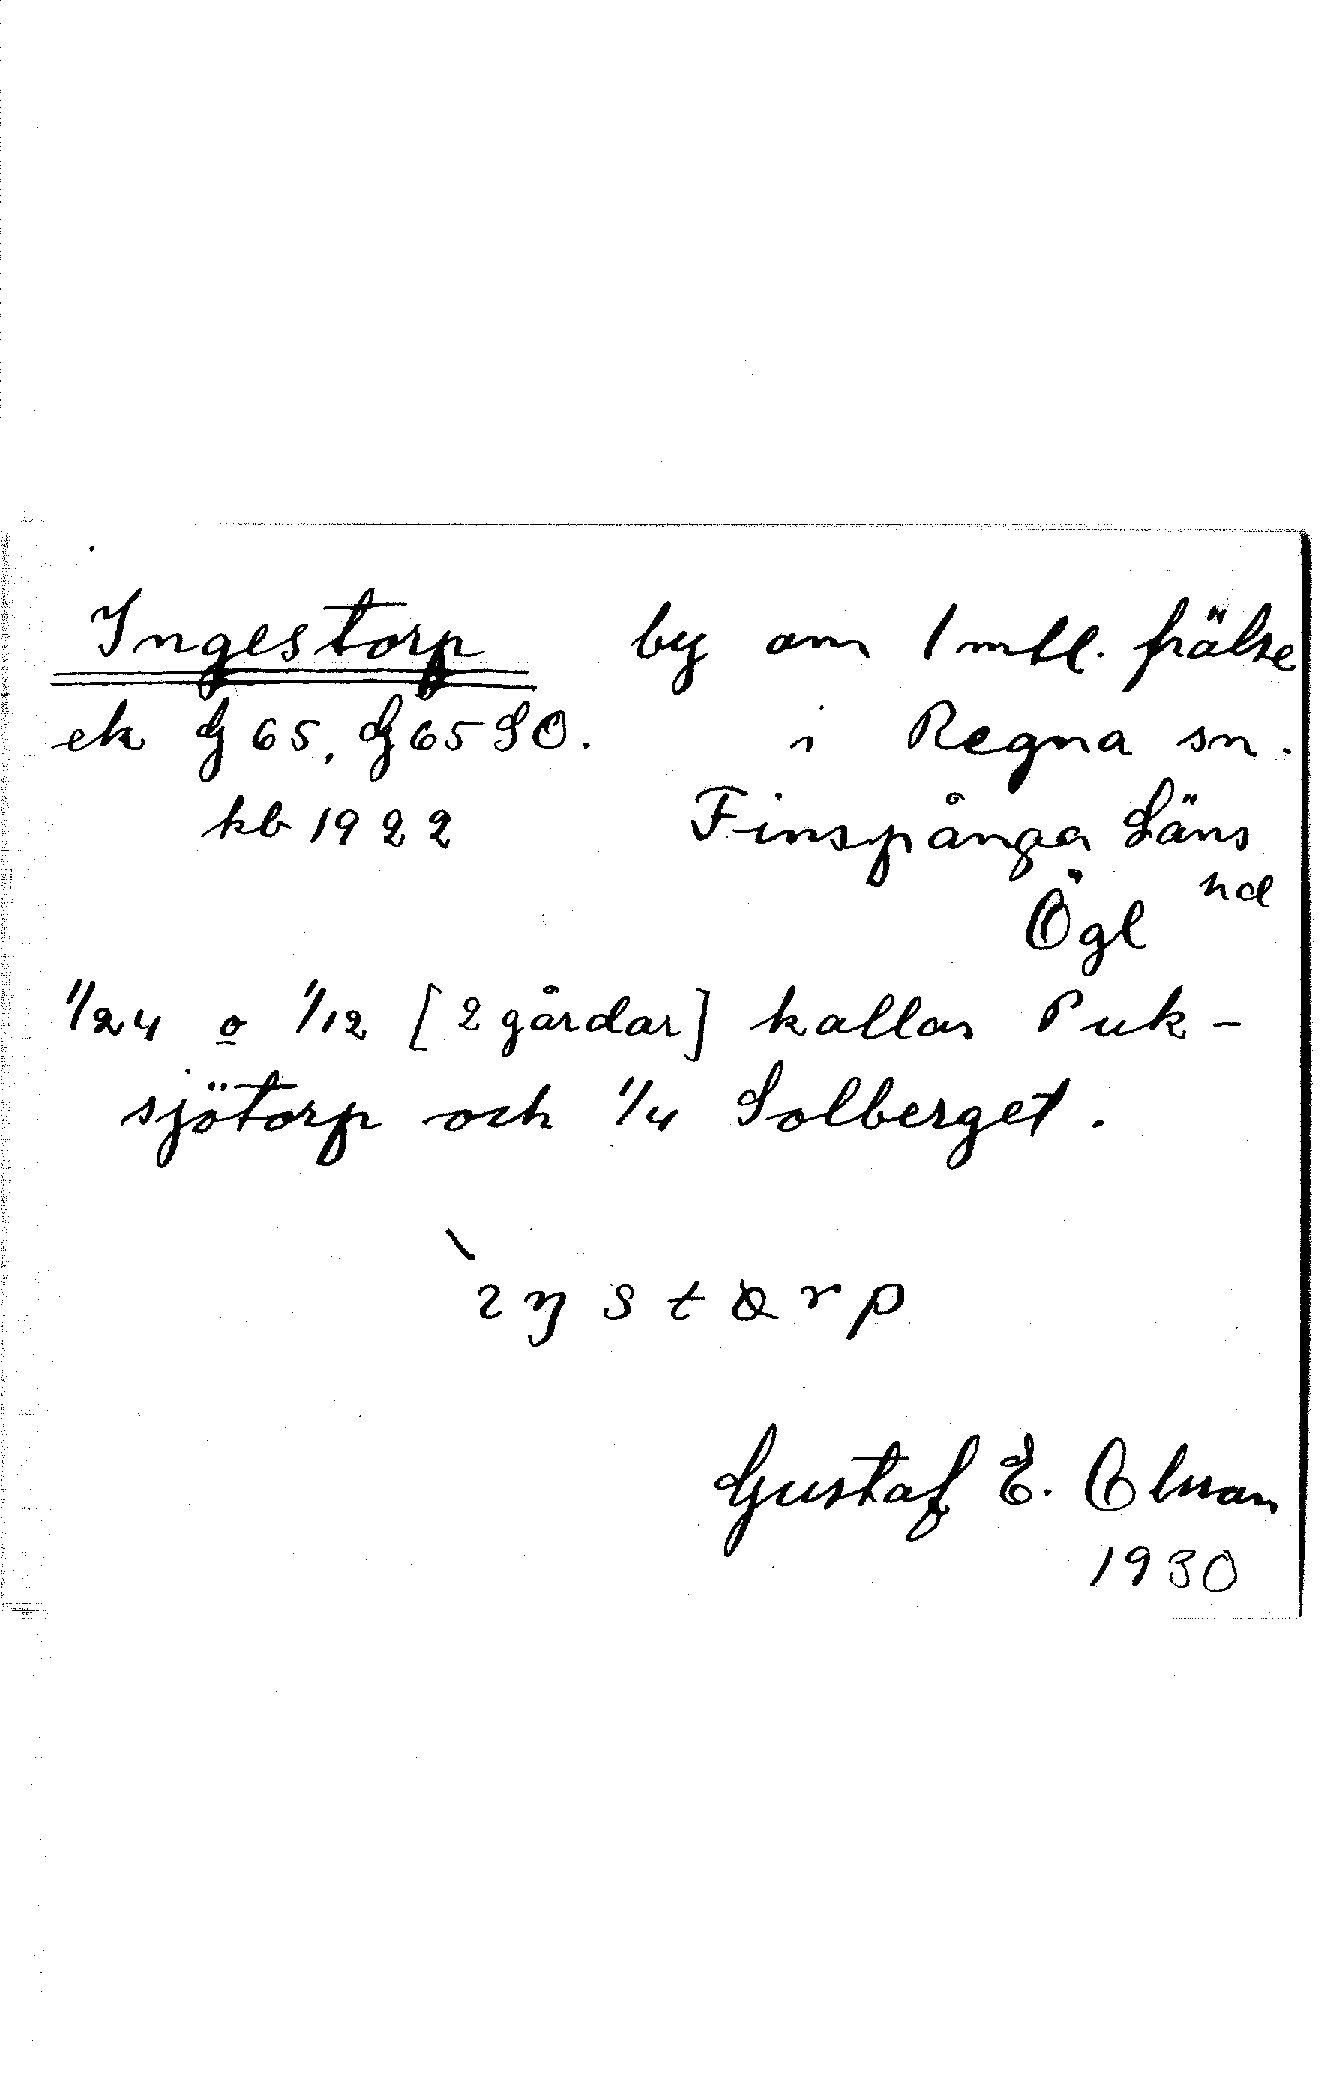 Ingestorp by om 1 mtl. frälse
ek G 65, G 65 SO. i Regna sn.
kb 1922 Finspånga Läns
hd
Ögl
1/24 o 1/12 [2 gårdar] kallas Puk-
sjötorp och 1/4 Solberget.
Gustaf E. Olman
1930